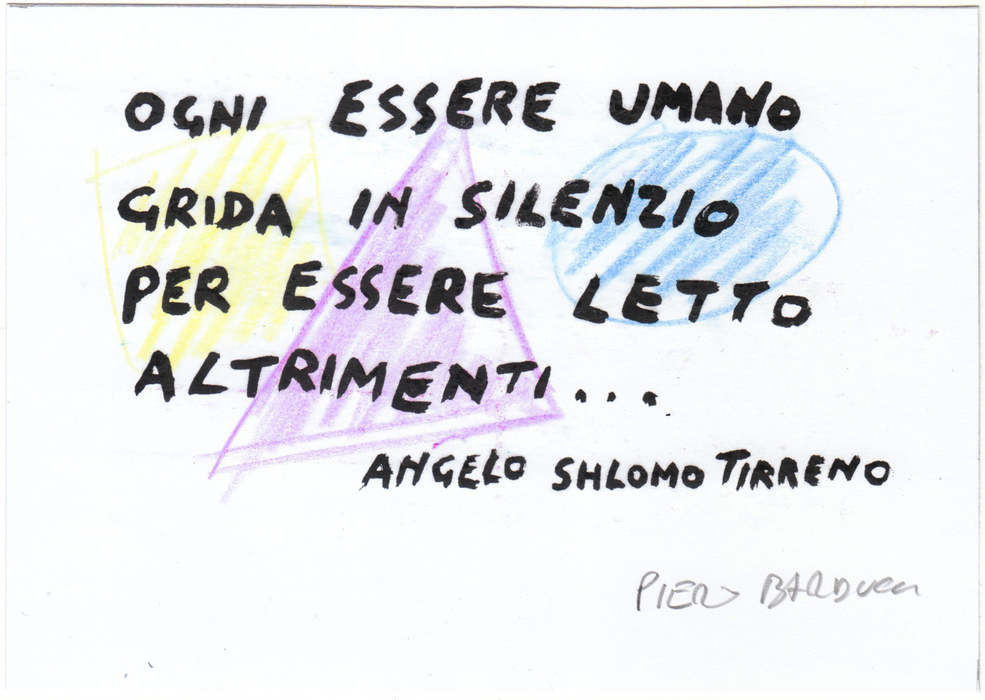 OGNI ESSERE UMANO
GRIDA IN SILENZIO
PER ESSERE LETTO
ALTRIMENTI...
ANGELO SHLOMO TIRRENO
PIERO BARDUCCI